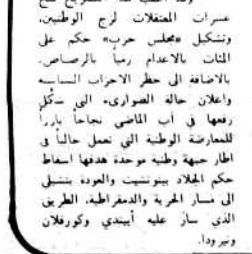 عشرات المعتقلات لزج الوطنيين،
وتشكيل «مجلس حرب» حكم على
المئات بالاعدام رمياً بالرصاص،
بالاضافة الى حظر الاحزاب السياسية
واعلان حالة الطوارىء التي شكّل
رفعها في آب الماضي نجاحاً بارزاً
للمعارضة الوطنية التي تعمل حالياً في
اطار جبهة وطنية موحدة هدفها اسقاط
حكم الجلاد بينوتشيت والعودة بتشيلي
الى مسار الحرية والديمقراطية، الطريق
الذي سار عليه أليندي وكورفلان
ونيرودا.